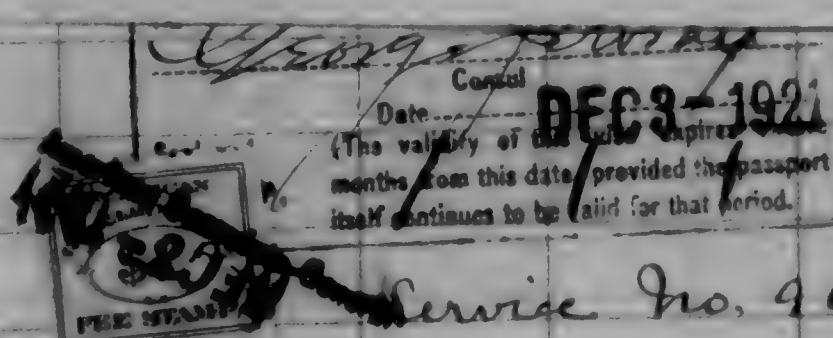 George
Consul
Date DEC 3 - 1921
(The validity of this visa expires
months from this date, provided the passport
itself continues to be valid for that period.
No.
$2
FEE STAMP
Service No. 9